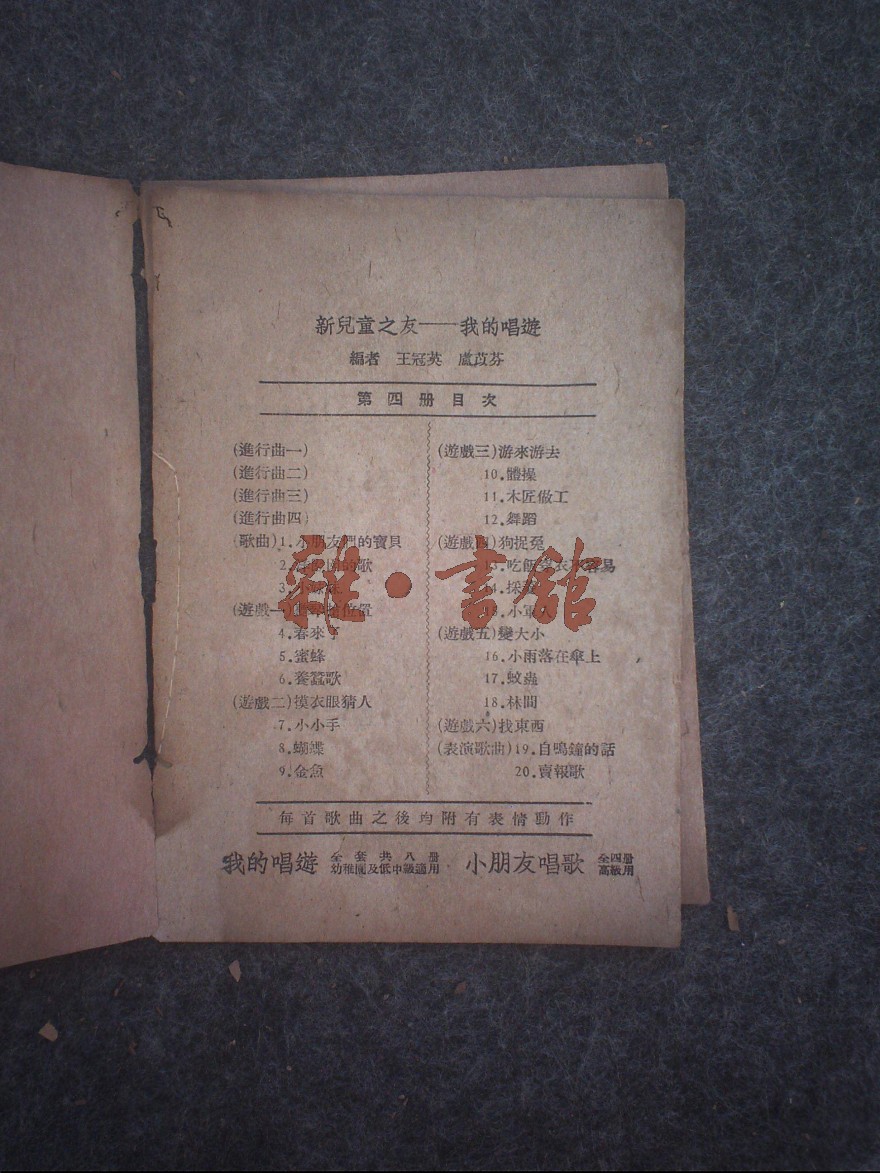 新兒童之友——我的唱遊
編者 王冠英 盧苡芬
第四册目次
(進行曲一)
(進行曲二)
(進行曲三)
(進行曲四)
(歌曲)1.小朋友們的寶貝
2.的歌
3.小妹妹
(遊戲一)位置
4.春來了
5.蜜蜂
6.養蠶歌
(遊戲二)摸衣眼猜人
7.小小手
8.蝴蝶
9.金魚
(遊戲三)游來游去
10.體操
11.木匠做工
12.舞蹈
(遊戲四)狗捉兔
13.吃飯穿衣不容易
14.採
15.小軍人
(遊戲五)變大小
16.小雨落在傘上
17.蚊蟲
18.林間
(遊戲六)找東西
(表演歌曲)19.自鳴鐘的話
20.賣報歌
每首歌曲之後均附有表情動作
我的唱遊 全套共八册 幼稚園及低中級適用 小朋友唱歌 全四册 高級用
雜·書館